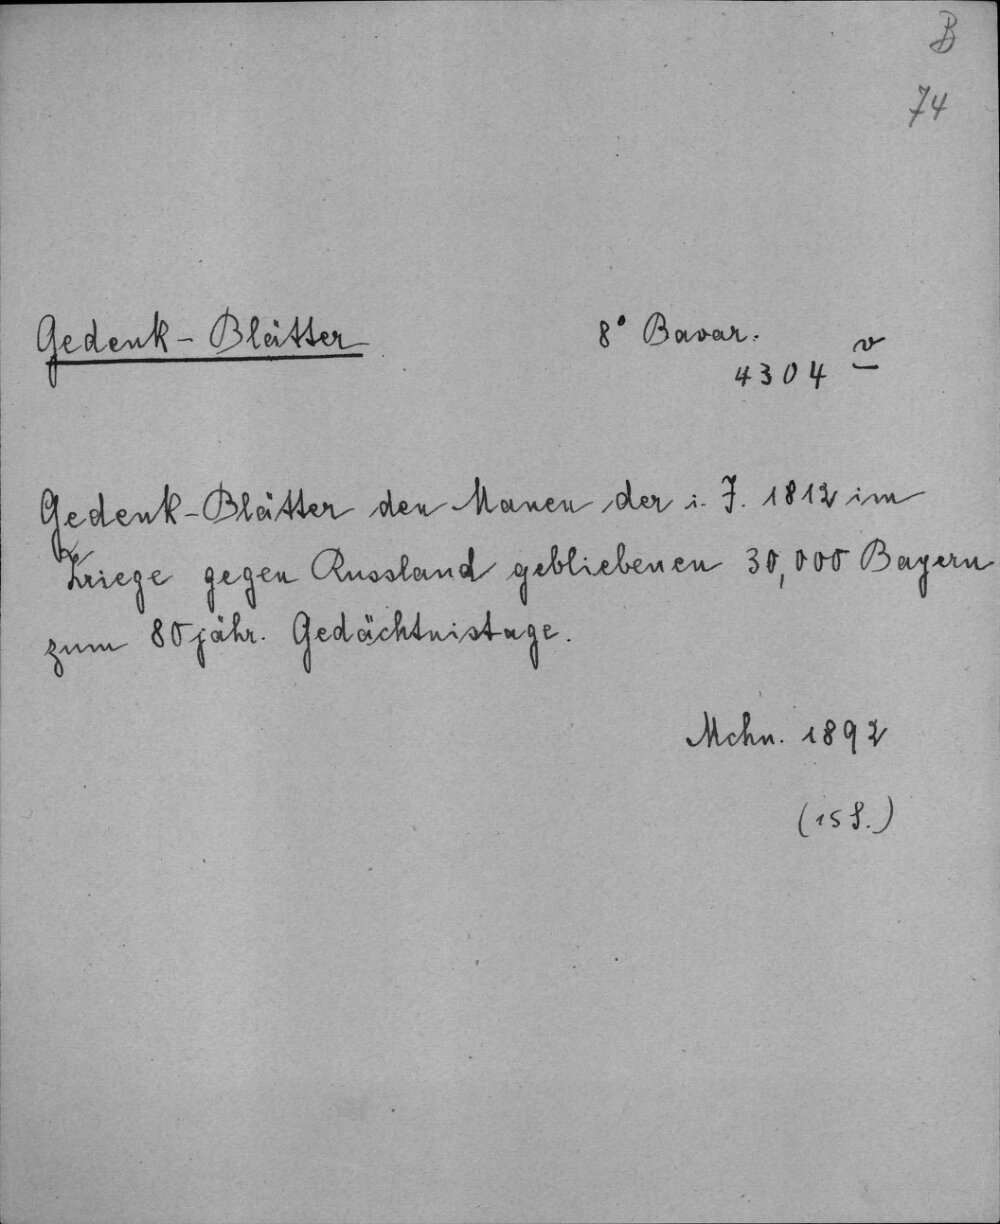 B
74
Gedenk-Blätter 8° Bavar.
4304 v
Gedenk-Blätter den Manen der i. J. 1812 im
Kriege gegen Russland gebliebenen 30,000 Bayern
zum 80jähr. Gedächtnistage.
Mchn. 1892
(15 S.)